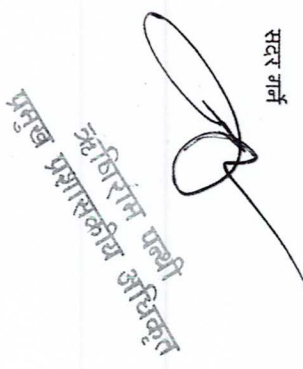 सदर गर्ने
ऋषिराम पन्थी
प्रमुख प्रशासकीय अधिकृत